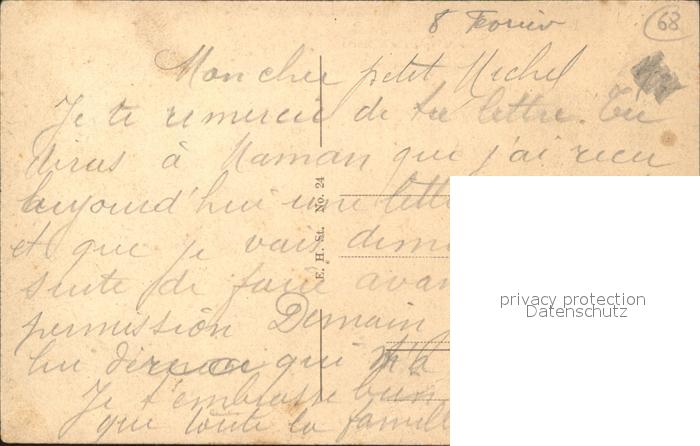 8 Fevrier
68
Mon cher petit Michel
Je te remercie de ta lettre. Tu
diras à Maman que j'ai recu
aujourd'hui une lett
et que je vais dem
suite de faire avan
permission Demain
lui qui
Je t'embrasse bien
que toute la famill
E. H. St. No. 24
privacy protection
Datenschutz